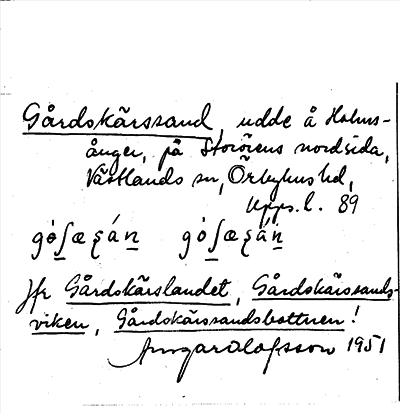 Gårdskärssand, udde å Holms-
ånger, på Storöens nordsida,
Västlands sn, Örbyhus hd,
Upps. l. 89
Jfr Gårdskärslandet, Gårdskärssands-
viken, Gårdskärssandsbottnen!
Olofsson 1951